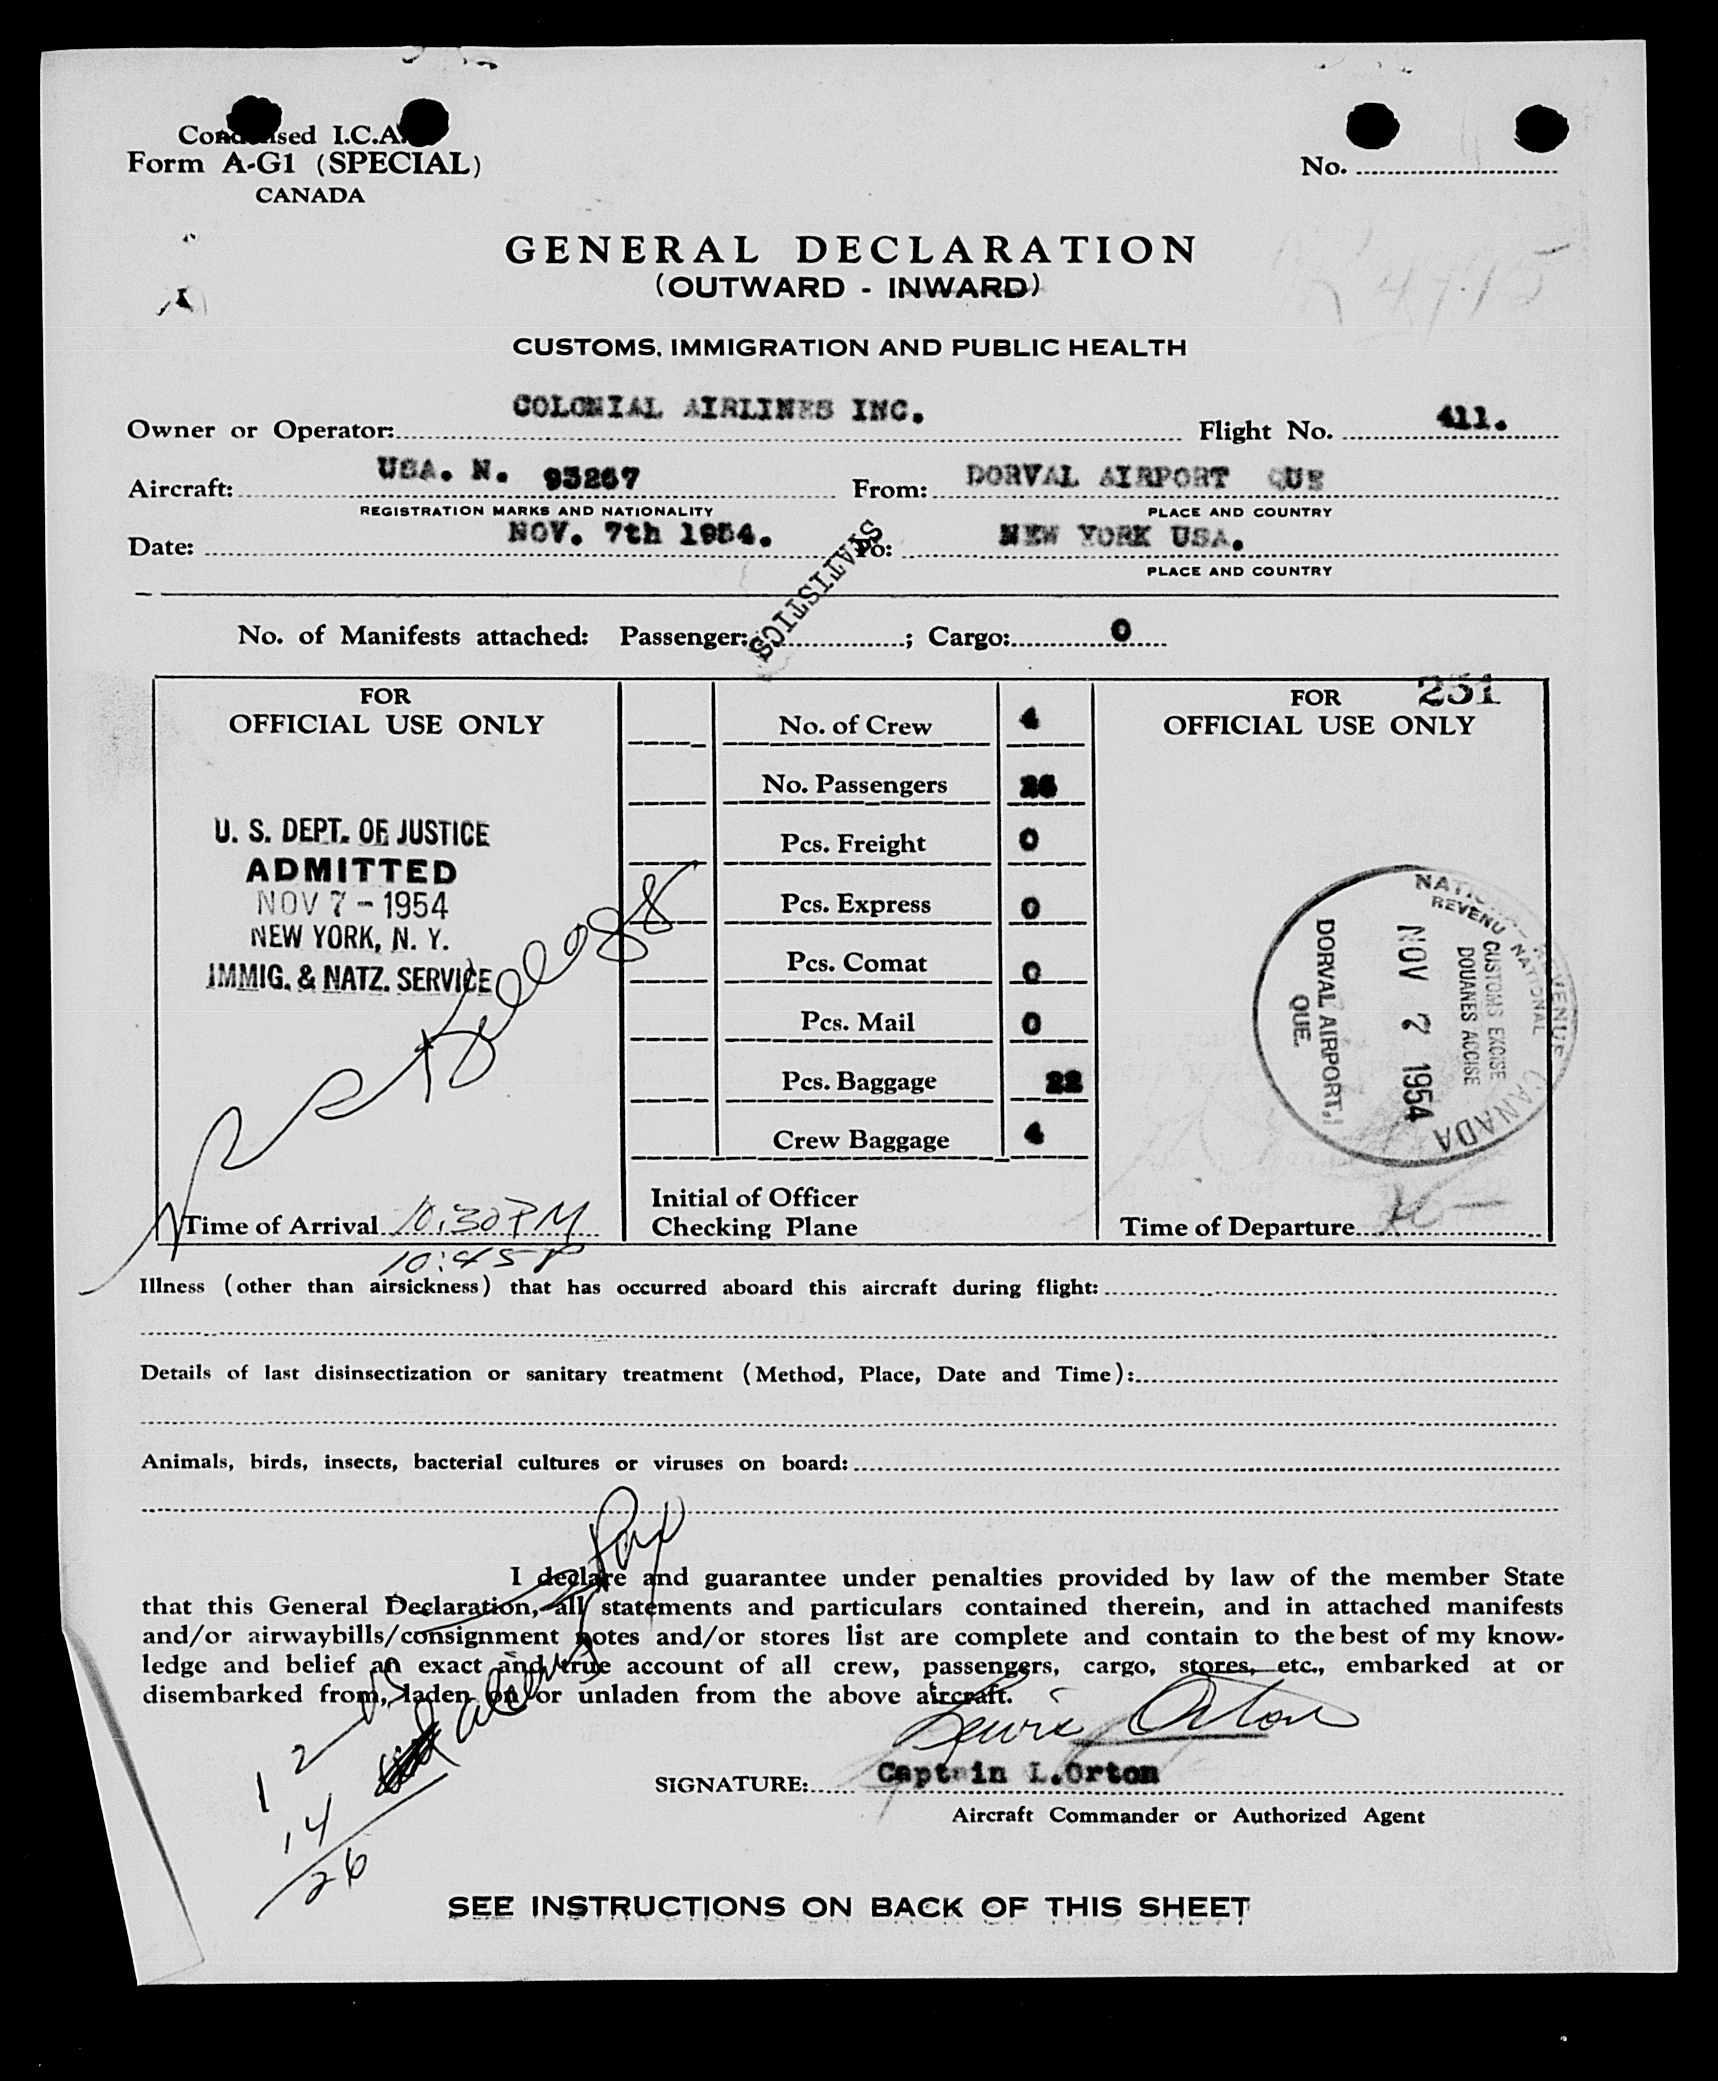 Condensed I.C.A.
Form A-G1 (SPECIAL)
CANADA
No.
GENERAL DECLARATION
(OUTWARD - INWARD)
CUSTOMS, IMMIGRATION AND PUBLIC HEALTH
Owner or Operator: COLONIAL AIRLINES INC. Flight No. 411.
Aircraft: USA. N. 93267 From: DORVAL AIRPORT QUE
REGISTRATION MARKS AND NATIONALITY PLACE AND COUNTRY
Date: NOV. 7th 1954. To: NEW YORK USA.
PLACE AND COUNTRY
STATISTICS
No. of Manifests attached: Passenger: ; Cargo: 0
FOR
OFFICIAL USE ONLY
U. S. DEPT. OF JUSTICE
ADMITTED
NOV 7 - 1954
NEW YORK, N. Y.
IMMIG. & NATZ. SERVICE
Time of Arrival 10:30 PM
10:45 P
No. of Crew 4
No. Passengers 26
Pcs. Freight 0
Pcs. Express 0
Pcs. Comat 0
Pcs. Mail 0
Pcs. Baggage 22
Crew Baggage 4
Initial of Officer
Checking Plane
FOR 251
OFFICIAL USE ONLY
NATIONAL REVENUE CANADA
REVENU NATIONAL
CUSTOMS EXCISE
DOUANES ACCISE
NOV 7 1954
DORVAL AIRPORT,
QUE.
Time of Departure
Illness (other than airsickness) that has occurred aboard this aircraft during flight:
Details of last disinsectization or sanitary treatment (Method, Place, Date and Time):
Animals, birds, insects, bacterial cultures or viruses on board:
I declare and guarantee under penalties provided by law of the member State
that this General Declaration, all statements and particulars contained therein, and in attached manifests
and/or airwaybills/consignment notes and/or stores list are complete and contain to the best of my know-
ledge and belief an exact and true account of all crew, passengers, cargo, stores, etc., embarked at or
disembarked from, laden on or unladen from the above aircraft.
12
14
26
Lewis Orton
SIGNATURE: Captain L.Orton
Aircraft Commander or Authorized Agent
SEE INSTRUCTIONS ON BACK OF THIS SHEET